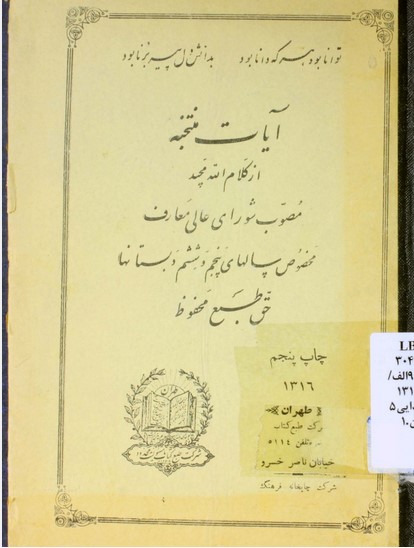 توانا بود هر که دانا بود بدانش دل پیر برنا بود
آیات منتخبه
از کلام الله مجید
مصوب شورای عالی معارف
مخصوص سالهای پنجم و ششم دبستانها
حق طبع محفوظ
چاپ پنجم
۱۳۱۶
طهران
شرکت طبع کتاب
تلفن ۵۱۱۴
خیابان ناصر خسرو
شرکت چاپخانه فرهنگ
طهران
LE
۳۰۴
۹الف/
۱۳۱
دایی۵
ن.۱